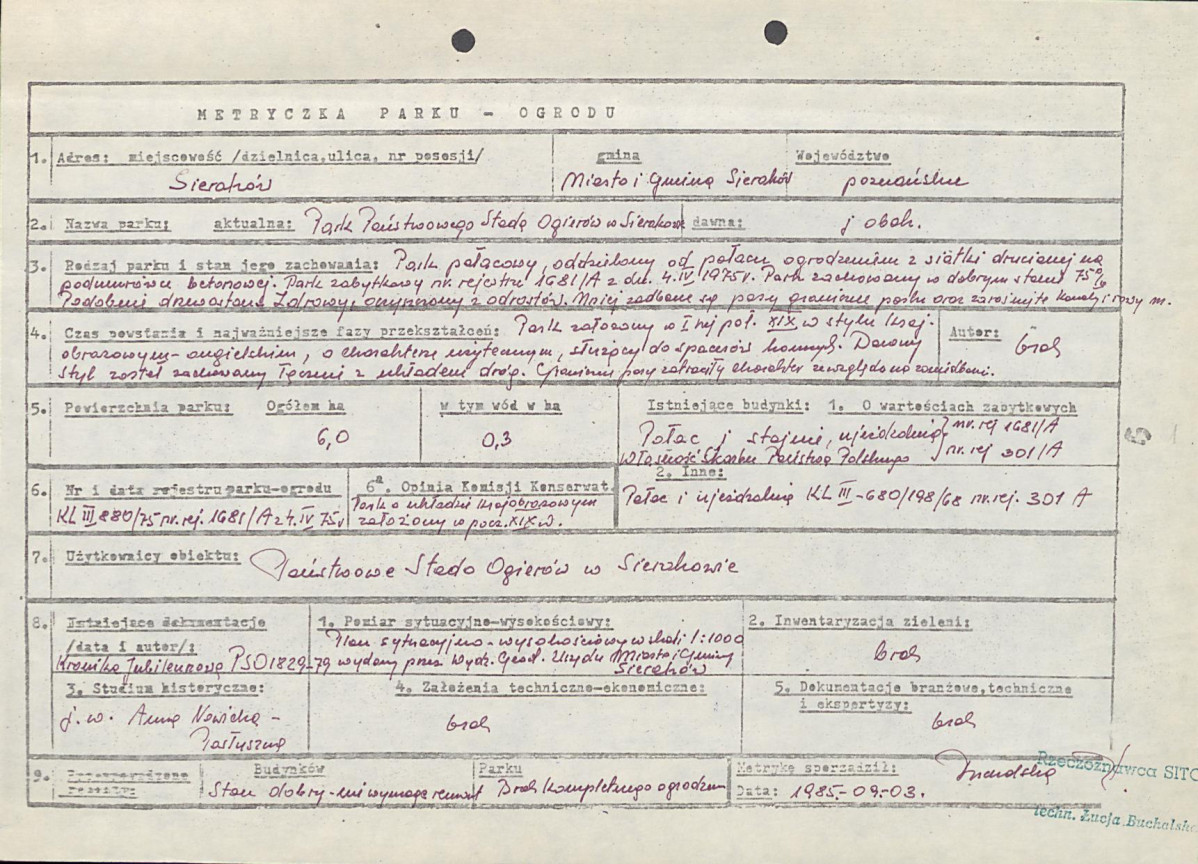 METRYCZKA PARKU - OGRODU
1. Adres: miejscowość /dzielnica, ulica, nr posesji/ gmina Województwo
Sieraków Miasto i Gmina Sieraków poznańskie
2. Nazwa parku: aktualna: Park Państwowego Stada Ogierów w Sierakowie dawna: j obok.
3. Rodzaj parku i stan jego zachowania: Park pałacowy, oddzielony od pałacu ogrodzeniem z siatki drucianej na
podmurówce betonowej. Park zabytkowy nr. rejestru 1681/A z dn. 4.IV 1975r. Park zachowany w dobrym stanie 75%
drzewostanu zdrowy, z odrostów. Mniej zadbane są pasy graniczne parku oraz zarośnięte kanały i rowy m.
4. Czas powstania i najważniejsze fazy przekształceń: Park założony w I-ej poł. XIX w stylu kraj- Autor:
obrazowym - angielskim, o charakterze użytecznym, służący do spacerów konnych. Dawny brak
styl został zachowany łącznie z układem dróg. Graniczne pasy zatraciły charakter ze względu na zaniedbanie.
5. Powierzchnia parku: Ogółem ha w tym wód w ha Istniejące budynki: 1. O wartościach zabytkowych
6,0 0,3 Pałac i stajnie, ujeżdżalnia nr. rej 1681/A
Własność Skarbu Państwa Polskiego nr. rej 301/A
2. Inne:
6. Nr i data rejestru parku-ogrodu 6a. Opinia Komisji Konserwat. Pałac i ujeżdżalnia KL III-680/198/68 nr. rej. 301 A
KL III 880/75 nr. rej. 1681/A z 4.IV 75r Park o układzie krajobrazowym
założony w pocz. XIX w.
7. Użytkownicy obiektu: Państwowe Stado Ogierów w Sierakowie
8. Istniejące dokumentacje 1. Pomiar sytuacyjno-wysokościowy: 2. Inwentaryzacja zieleni:
/data i autor/: Plan sytuacyjno-wysokościowy w skali 1:1000 brak
Kronika Jubileuszowa PSO 1829-79 wydany przez Wydz. Geod. Urzędu Miasta i Gminy
Sieraków
3. Studium historyczne: 4. Założenia techniczno-ekonomiczne: 5. Dokumentacje branżowe, techniczne
i ekspertyzy:
j. w. Anna Nowicka - brak brak
9. Przeprowadzone Budynków Parku Metrykę sporządził:
remonty: Stan dobry - nie wymaga remont Brak kompletnego ogrodzen Data: 1985-09-03.
Rzeczoznawca SITO
techn. Łucja Buchalska
5